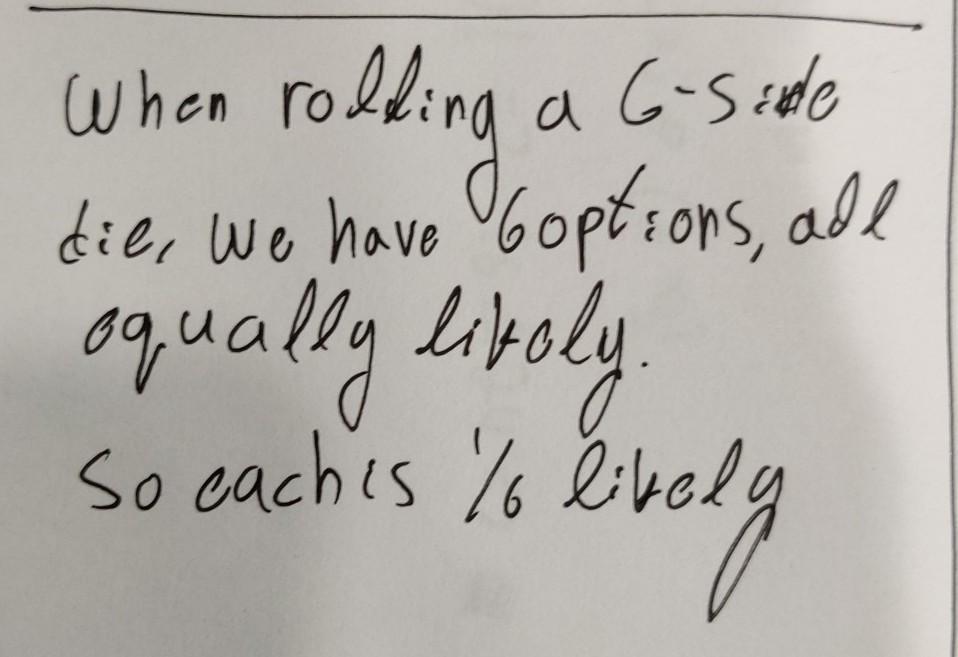 When rolling a 6-side
die, we have 6 options, all
equally likely.
So each is 1/6 likely